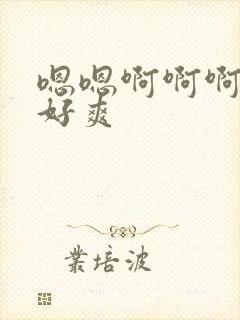 嗯嗯啊啊啊
好爽
業培波